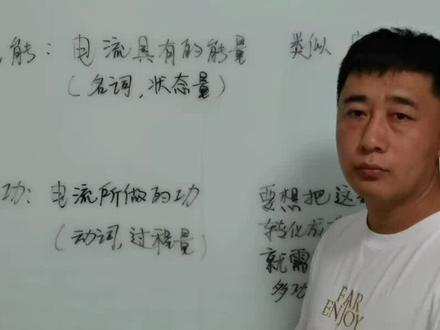 能：电流具有的能量 类似
（名词，状态量）
功：电流所做的功 要想把这
（动词，过程量） 转化
就需
多功
FAR
ENJOY